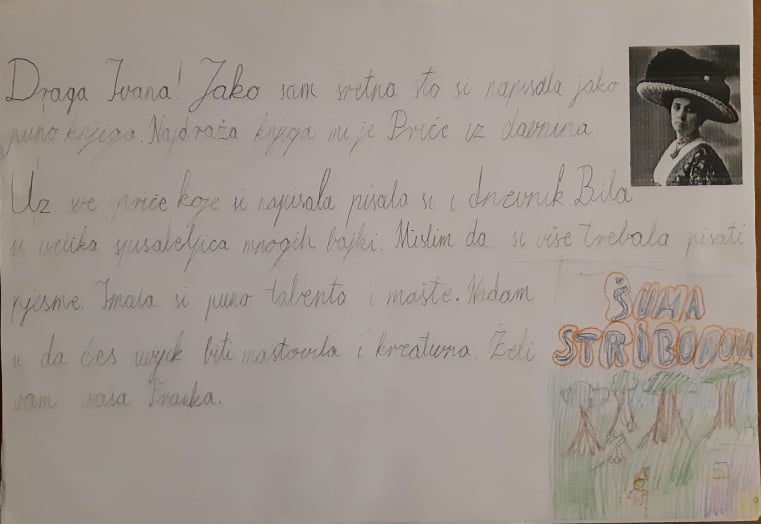 Draga Ivana! Jako sam sretna što si napisala jako
puno knjiga. Najdraža knjiga mi je Priče iz davnina.
Uz sve priče koje si napisala pisala si i dnevnik Bila
si velika spisateljica mnogih bajki. Mislim da si više trebala pisati
pjesme. Imala si puno talenta i mašte. Nadam
se da ćeš uvijek biti maštovita i kreativna. Želi
vam vaša Franka.
ŠUMA
STRIBOROVA